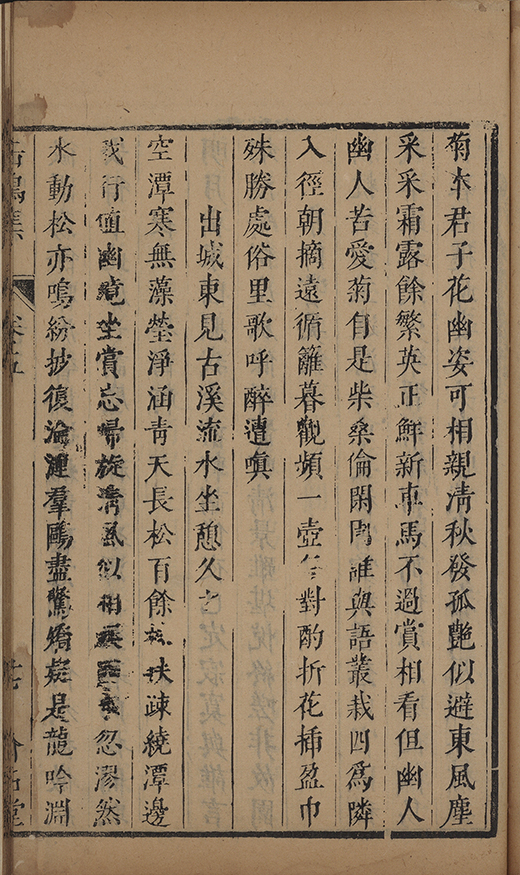 菊本君子花幽姿可相親淸秋發孤艷似避東風塵
采采霜露餘繁英正鮮新車馬不過賞相看但幽人
幽人苦愛菊自是柴桑倫閑門誰與語叢栽四爲隣
入徑朝摘遠循籬暮觀頻一壺對酌折花揷盈巾
殊勝處俗里歌呼醉遭嗔
出城東見古溪流水坐憩久之
空潭寒無藻瑩淨涵靑天長松百餘株扶疎繞潭邊
我行値幽境坐賞忘歸旋淸風似相忽漻然
水動松亦鳴紛披復淪漣羣鷗盡驚矯疑是龍吟淵
鳴集 卷五 堂